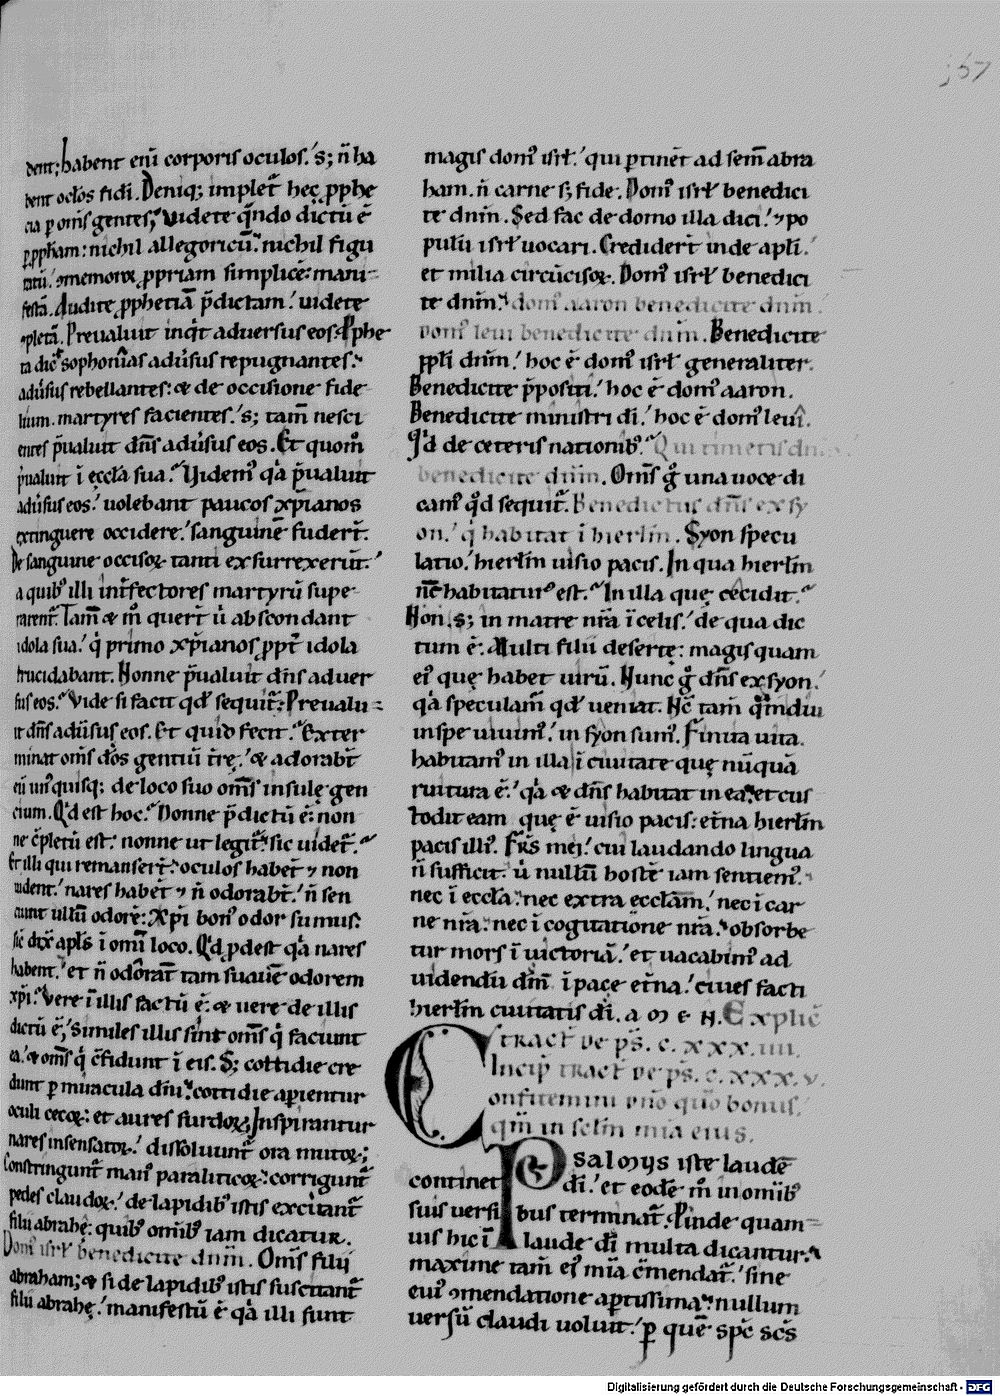 167
dent; habent eni᷑ corporis oculos.' s; n̄ ha
bent oclo̅s fidi. Deniq; implet᷑ hęc ꝓphe
cia ꝑ om̄s gentes; videte qn̄do dictū ē
ꝑ ꝓpham: nichil allegoricū: nichil figu
festā. Audite ꝓphetiā p̄dictam.' uidete
pletā. Preualuit inq̇t aduersus eos. Pphe
ta dic̄ sophonias adu̇sus repugnantes.
adu̇sus rebellantes: & de occisione fide
lium. martyres facientes.' s; tam̄ nesci
entes p̄ualuit dn̄s adu̇sus eos. Et quom̊
p̄ualuit ī eccl̄a sua. Videmꝰ qa̓ p̄ualuit
adu̇sus eos.' uolebant paucos xp̄ianos
extinguere occidere.' sanguinē fuder̄t.
De sanguine occisoꝝ tanti exsurrexerūt.'
a quibꝰ illi int̄fectores martyrū supe
rarent᷑. Tam̄ & m̊ quer̄t u̇ abscondant
idola sua.' q̇ primo xp̄ianos ꝓpt̄ idola
trucidabant. Nonne p̄ualuit dn̄s aduer
sus eos. Vide si facit qd̄ sequit᷑: Preualu
it dn̄s adu̇sus eos. Et quid fecit. Exter
minat om̄s do̅s gentiū t̄rę.' & adorab̄t
eū unꝰquisq; de loco suo om̄s insulę gen
cium. Qd̄ est hoc. Nonne p̄dictū ē: non
ne c̄pletū est. nonne ut legit᷑: sic uidet᷑.
Et illi qui remanser̄t: oculos haben̄t ⁊ non
uident.' nares haben̄t ⁊ n̄ odorab̄t.' n̄ sen
ciunt ullū odorē: Xp̄i bonꝰ odor sumus:
sic̄ dix̄ apl̄s ī omi̅ loco. Qd̄ ꝓdest qa̓ nares
habent.' et n̄ odōrant tam suauē odorem
xp̄i. Vere ī illis factū ē: & uere de illis
dictū ē; similes illis sint om̄s q̇ faciunt
ea.' & om̄s q̇ c̄fidunt ī eis. S; cottidie cre
dunt ꝑ miracula dn̄i: cottidie aperientur
oculi cecoꝝ: et aures surdoꝝ. Inspirantur
nares insensatoꝝ.' dissoluunt᷑ ora mutoꝝ;
Constringunt᷑ manꝰ paraliticoꝝ: corrigunt᷑
pedes claudoꝝ.' de lapidibꝰ istis excitant᷑
filii abrahę: quibꝰ omībꝰ iam dicatur.
Domꝰ isrl̄ benedicite dnm̄. Om̄s filii
abraham; & si de lapidibꝰ istis suscitant᷑
filii abrahę.' manifestū ē qa̓ illi sunt
magis domꝰ isrl̄.' qui ꝑtinēt ad sem̄ abra
ham. n̄ carne s; fide. Domꝰ isrl̄ benedici
te dnm̄. Sed fac de domo illa dici.' ⁊ po
pulū isrl̄ uocari. Crediderīt inde apl̄i.'
et milia circūcisoꝝ. Domꝰ isrl̄ benedici
te dnm̄. domꝰ aaron benedicite dnm̄
domꝰ leui benedicite dnm̄. Benedicite
ppl̄i dnm̄.' hoc ē domꝰ isrl̄ generaliter.
Benedicite p̄positi.' hoc ē domꝰ aaron.
Benedicite ministri di̅.' hoc ē domꝰ leui.
Qd̄ de ceteris nationibꝰ. Qui timetis dn̄m
benedicite dnm̄. Om̄s g̊ una uoce di
camꝰ qd̄ sequit᷑. Benedictus dn̄s ex sy
on.' q̇ habitat ī hierlm̄. Syon specu
latio.' hierlm̄ uisio pacis. In qua hierlm̄
nc̄ habitaturꝰ est. In illa quę cecidit.
Non. s; in matre nr̄a ī celis.' de qua dic
tum ē. Multi filii desertę: magis quam
eiꝰ quę habet uirū. Nunc g̊ dn̄s ex syon.'
qa̓ speculam̄ qd̄ ueniat. Nc̄ tam̄ qm̄diu
in spe uiuimꝰ.' in syon sumꝰ. Finita uita.
habitamꝰ in illa ī ciuitate quę nūquā
ruitura ē.' qa̓ & dn̄s habitat in ea: et cus
todit eam quę ē uisio pacis: et̄na hierlm̄
pacis illiꝰ. Fr̄s mei.' cui laudando lingua
n̄ sufficit. u̇ nullū hostē iam sentiemꝰ.
nec ī eccl̄a: nec extra eccl̄am.' nec ī car
ne nr̄a: nec ī cogitatione nr̄a: obsorbe
tur mors ī uictoriā.' et uacabimꝰ ad
uidendū dm̄ ī pace et̄na.' ciues facti
hierlm̄ ciuitatis di̅. amen. Explic̄
tract̄ de ps̄. c.xxx.iiii.
Incip̄ tract̄ de ps̄. c.xxx.v.
Confitemini dn̄o qm̄ bonus.'
qm̄ in sclm̄ mīa eius.
Psalmus iste laudē
continet di̅.' et eodē m̊ in omībꝰ
suis uersibus terminat᷑. Proinde quam
uis hic ī laude di̅ multa dicantur.
maxime tam̄ eiꝰ mīa c̄mendat᷑.' sine
euiꝰ ꝯmendatione apertissima: nullum
versū claudi uoluit.' ꝑ quē spc̄ scs̄
Digitalisierung gefördert durch die Deutsche Forschungsgemeinschaft - DFG